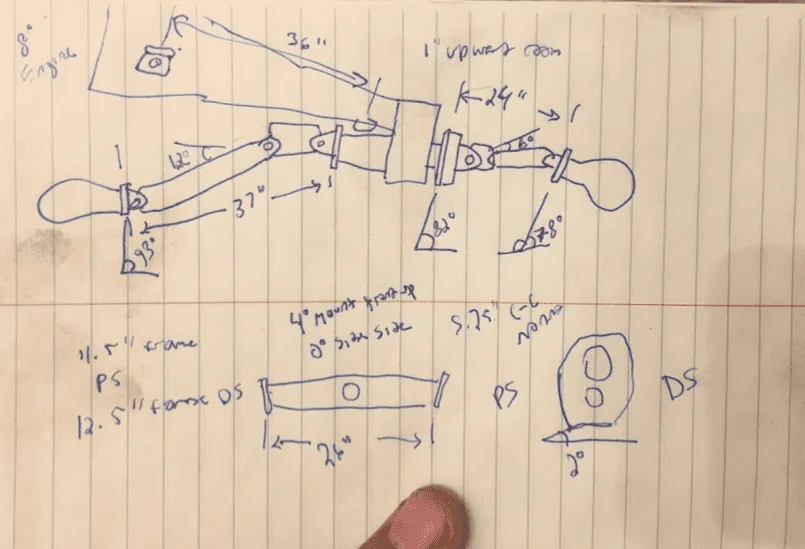 8°
Engine
36"
1" upward room
24"
12°
6°
37"
93°
82°
78°
4° Mount
0° Side Side
5.25" C-C
11.5" frame
PS
12.5" frame DS
26"
PS
DS
2°